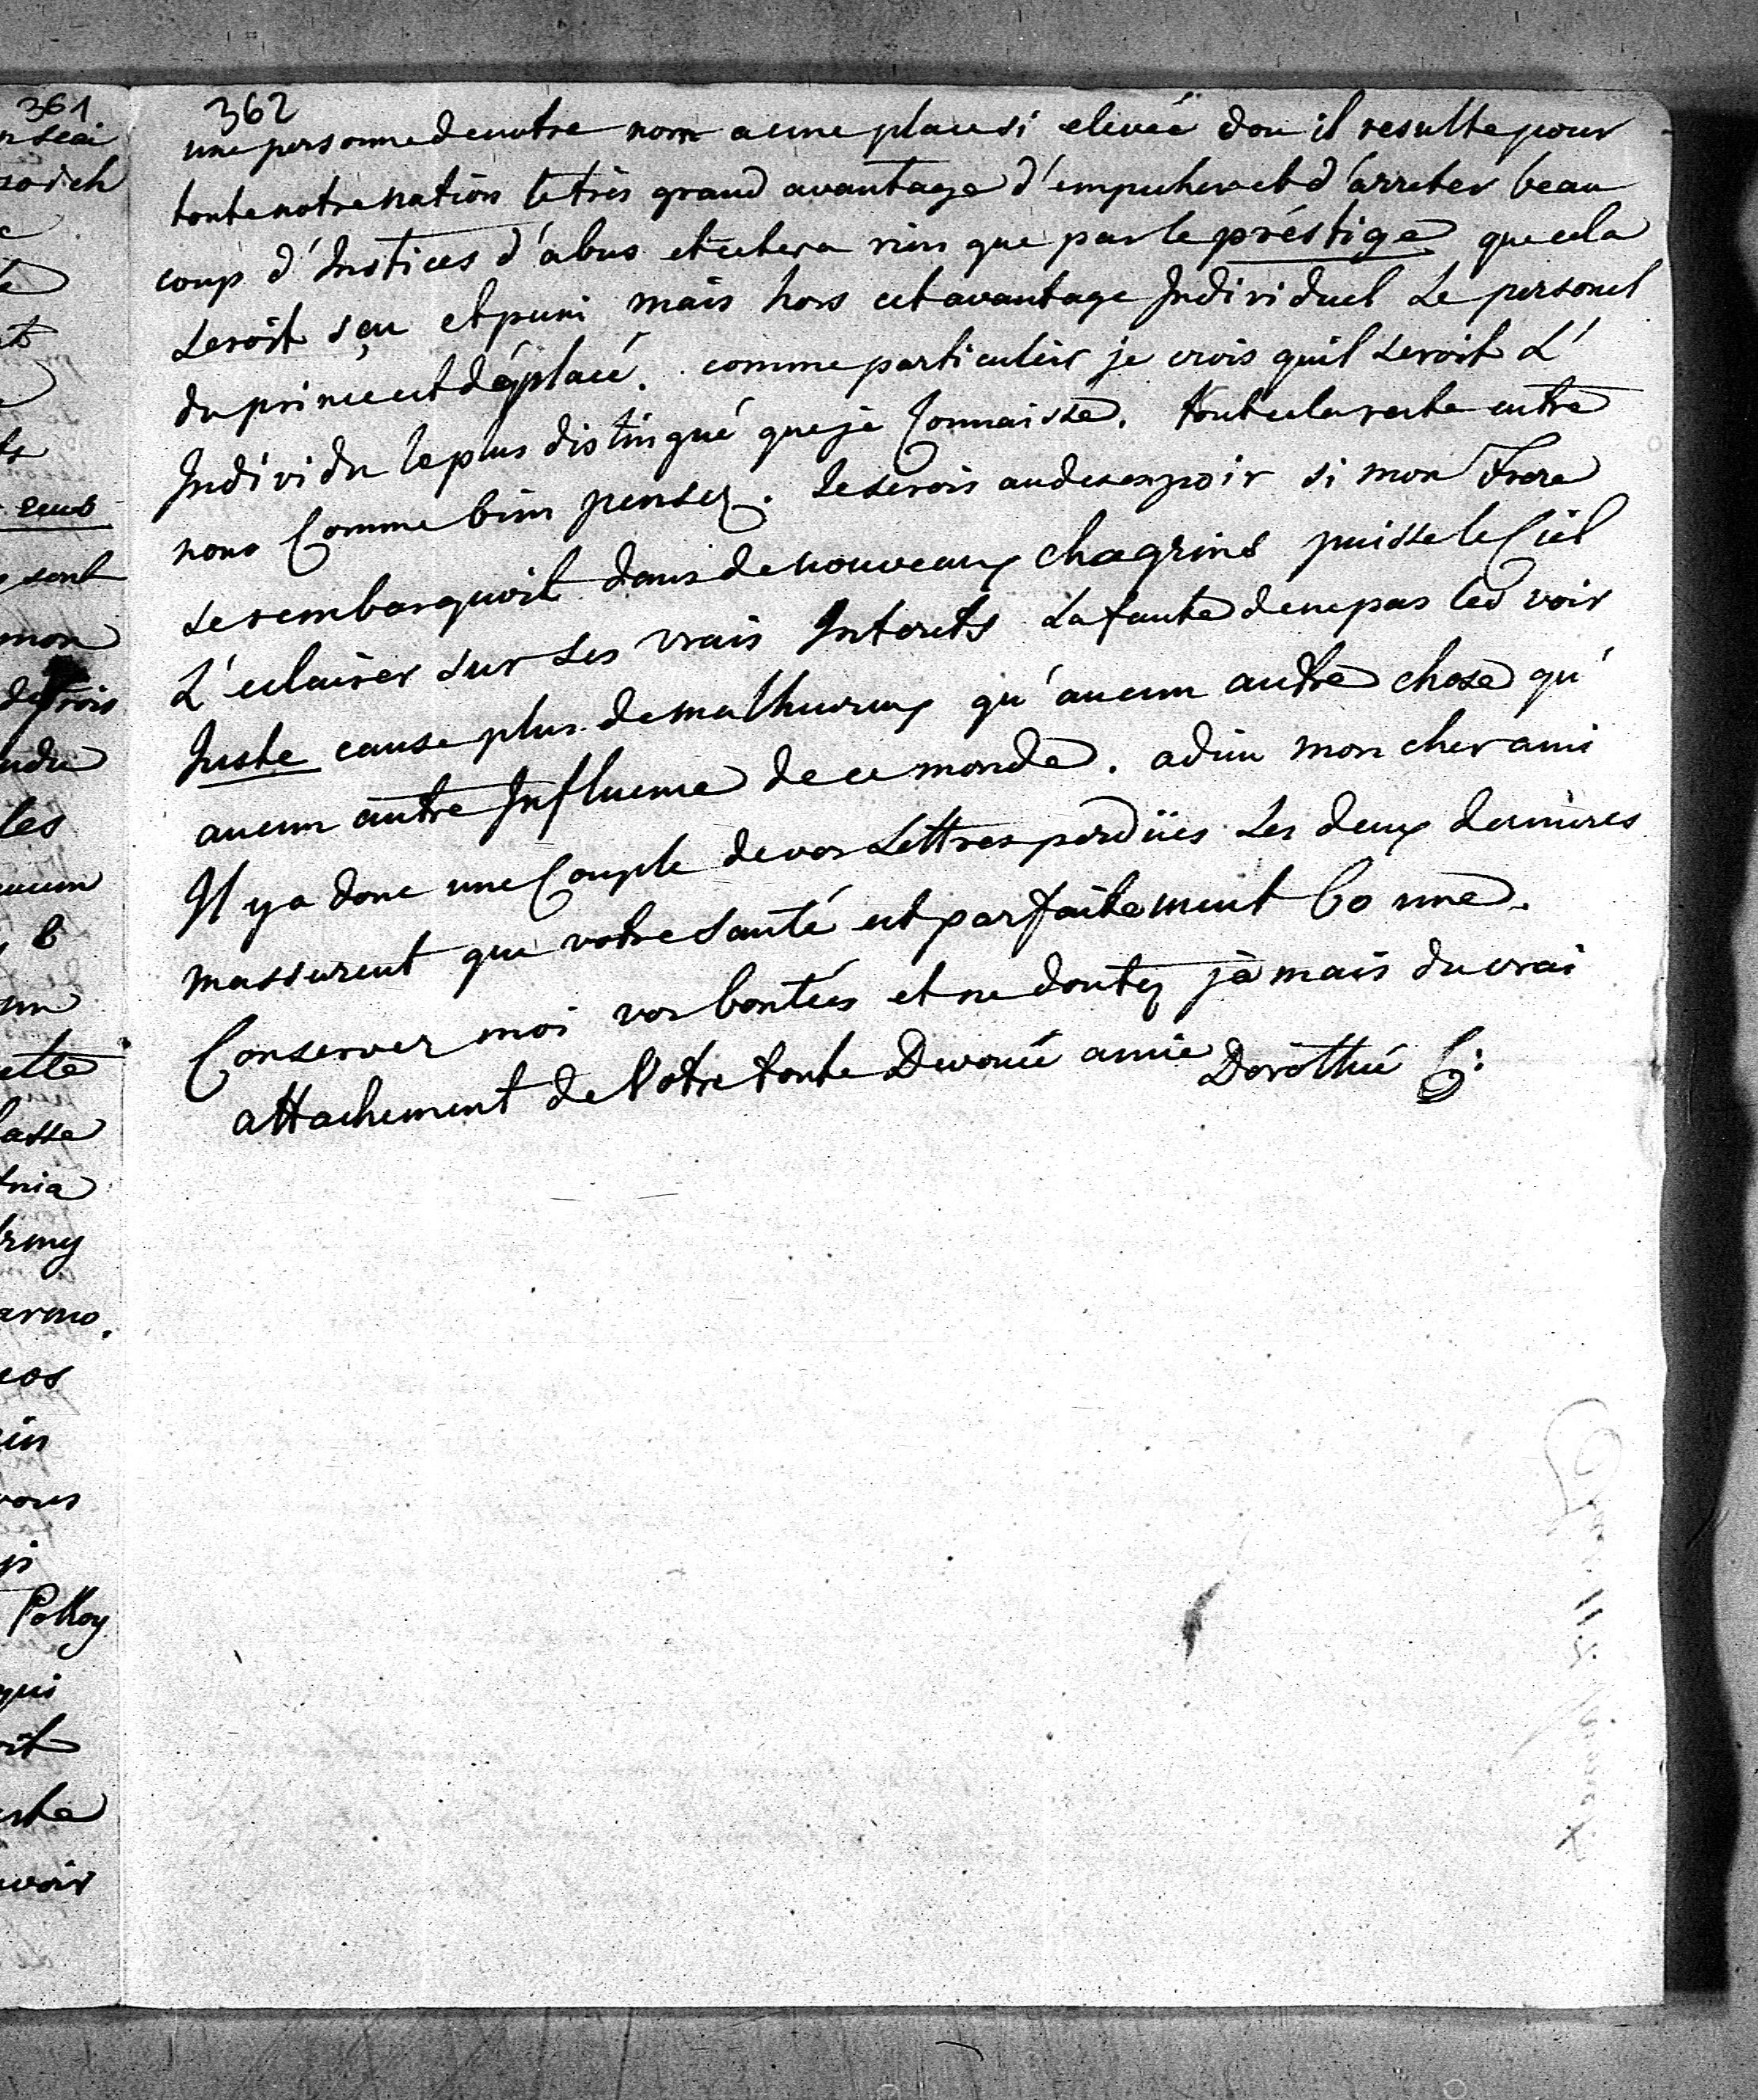 362
une personne de notre nom a une place si elevée dou il resulte pour
toute notre nation le très grand avantage d'empecher et d'arreter beau
coup d'Instices d'abus et cetera rien que par le préstige que cela
seroit sçu et puni mais hors cet avantage Individuel Le personel
du prince est déplacé. comme particulier je crois quil seroit L'
Individu le plus distingué que je Connaisse. tout cela reste entre
nous Comme bien pensez. Je serois au desespoir si mon Frere
se rembarquoit dans de nouveaux chagrins puisse le Ciel
L'eclairer sur ses vrais Interets La faute de ne pas les voir
Juste cause plus de malheureux qu'aucun autre chose qu'
aucun autre Influence de ce monde. adieu mon cher ami
Il y a donc une Couple de vos Lettres perdües Les deux dernieres
massurent que votre santé est parfaitement bonne.
Conserver moi vos bontées et ne doutez jamais du vrai
attachement de Votre toute Devouée amie Dorothée
361
sont
mon
les
Polkoy